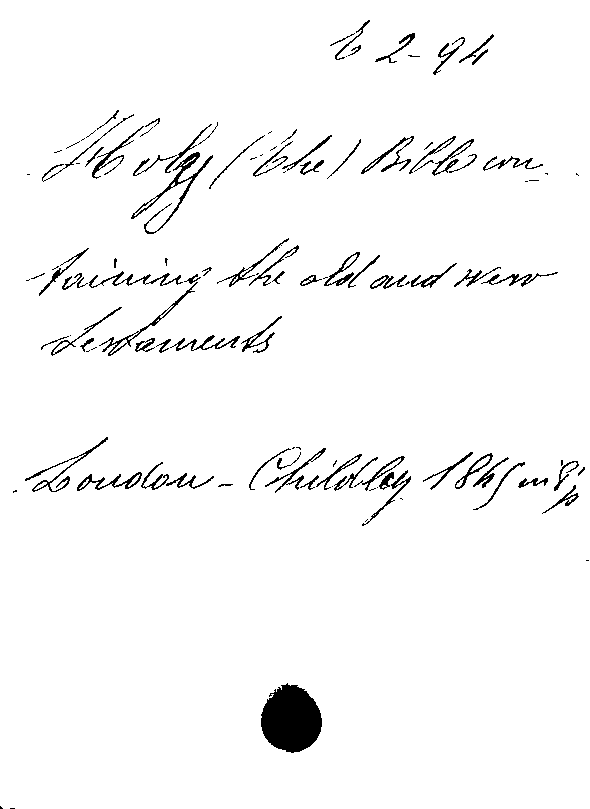 E 2-94
Holy (The) Bible con-
taining the old and new
testaments
London - Childley 1845 in 8° p